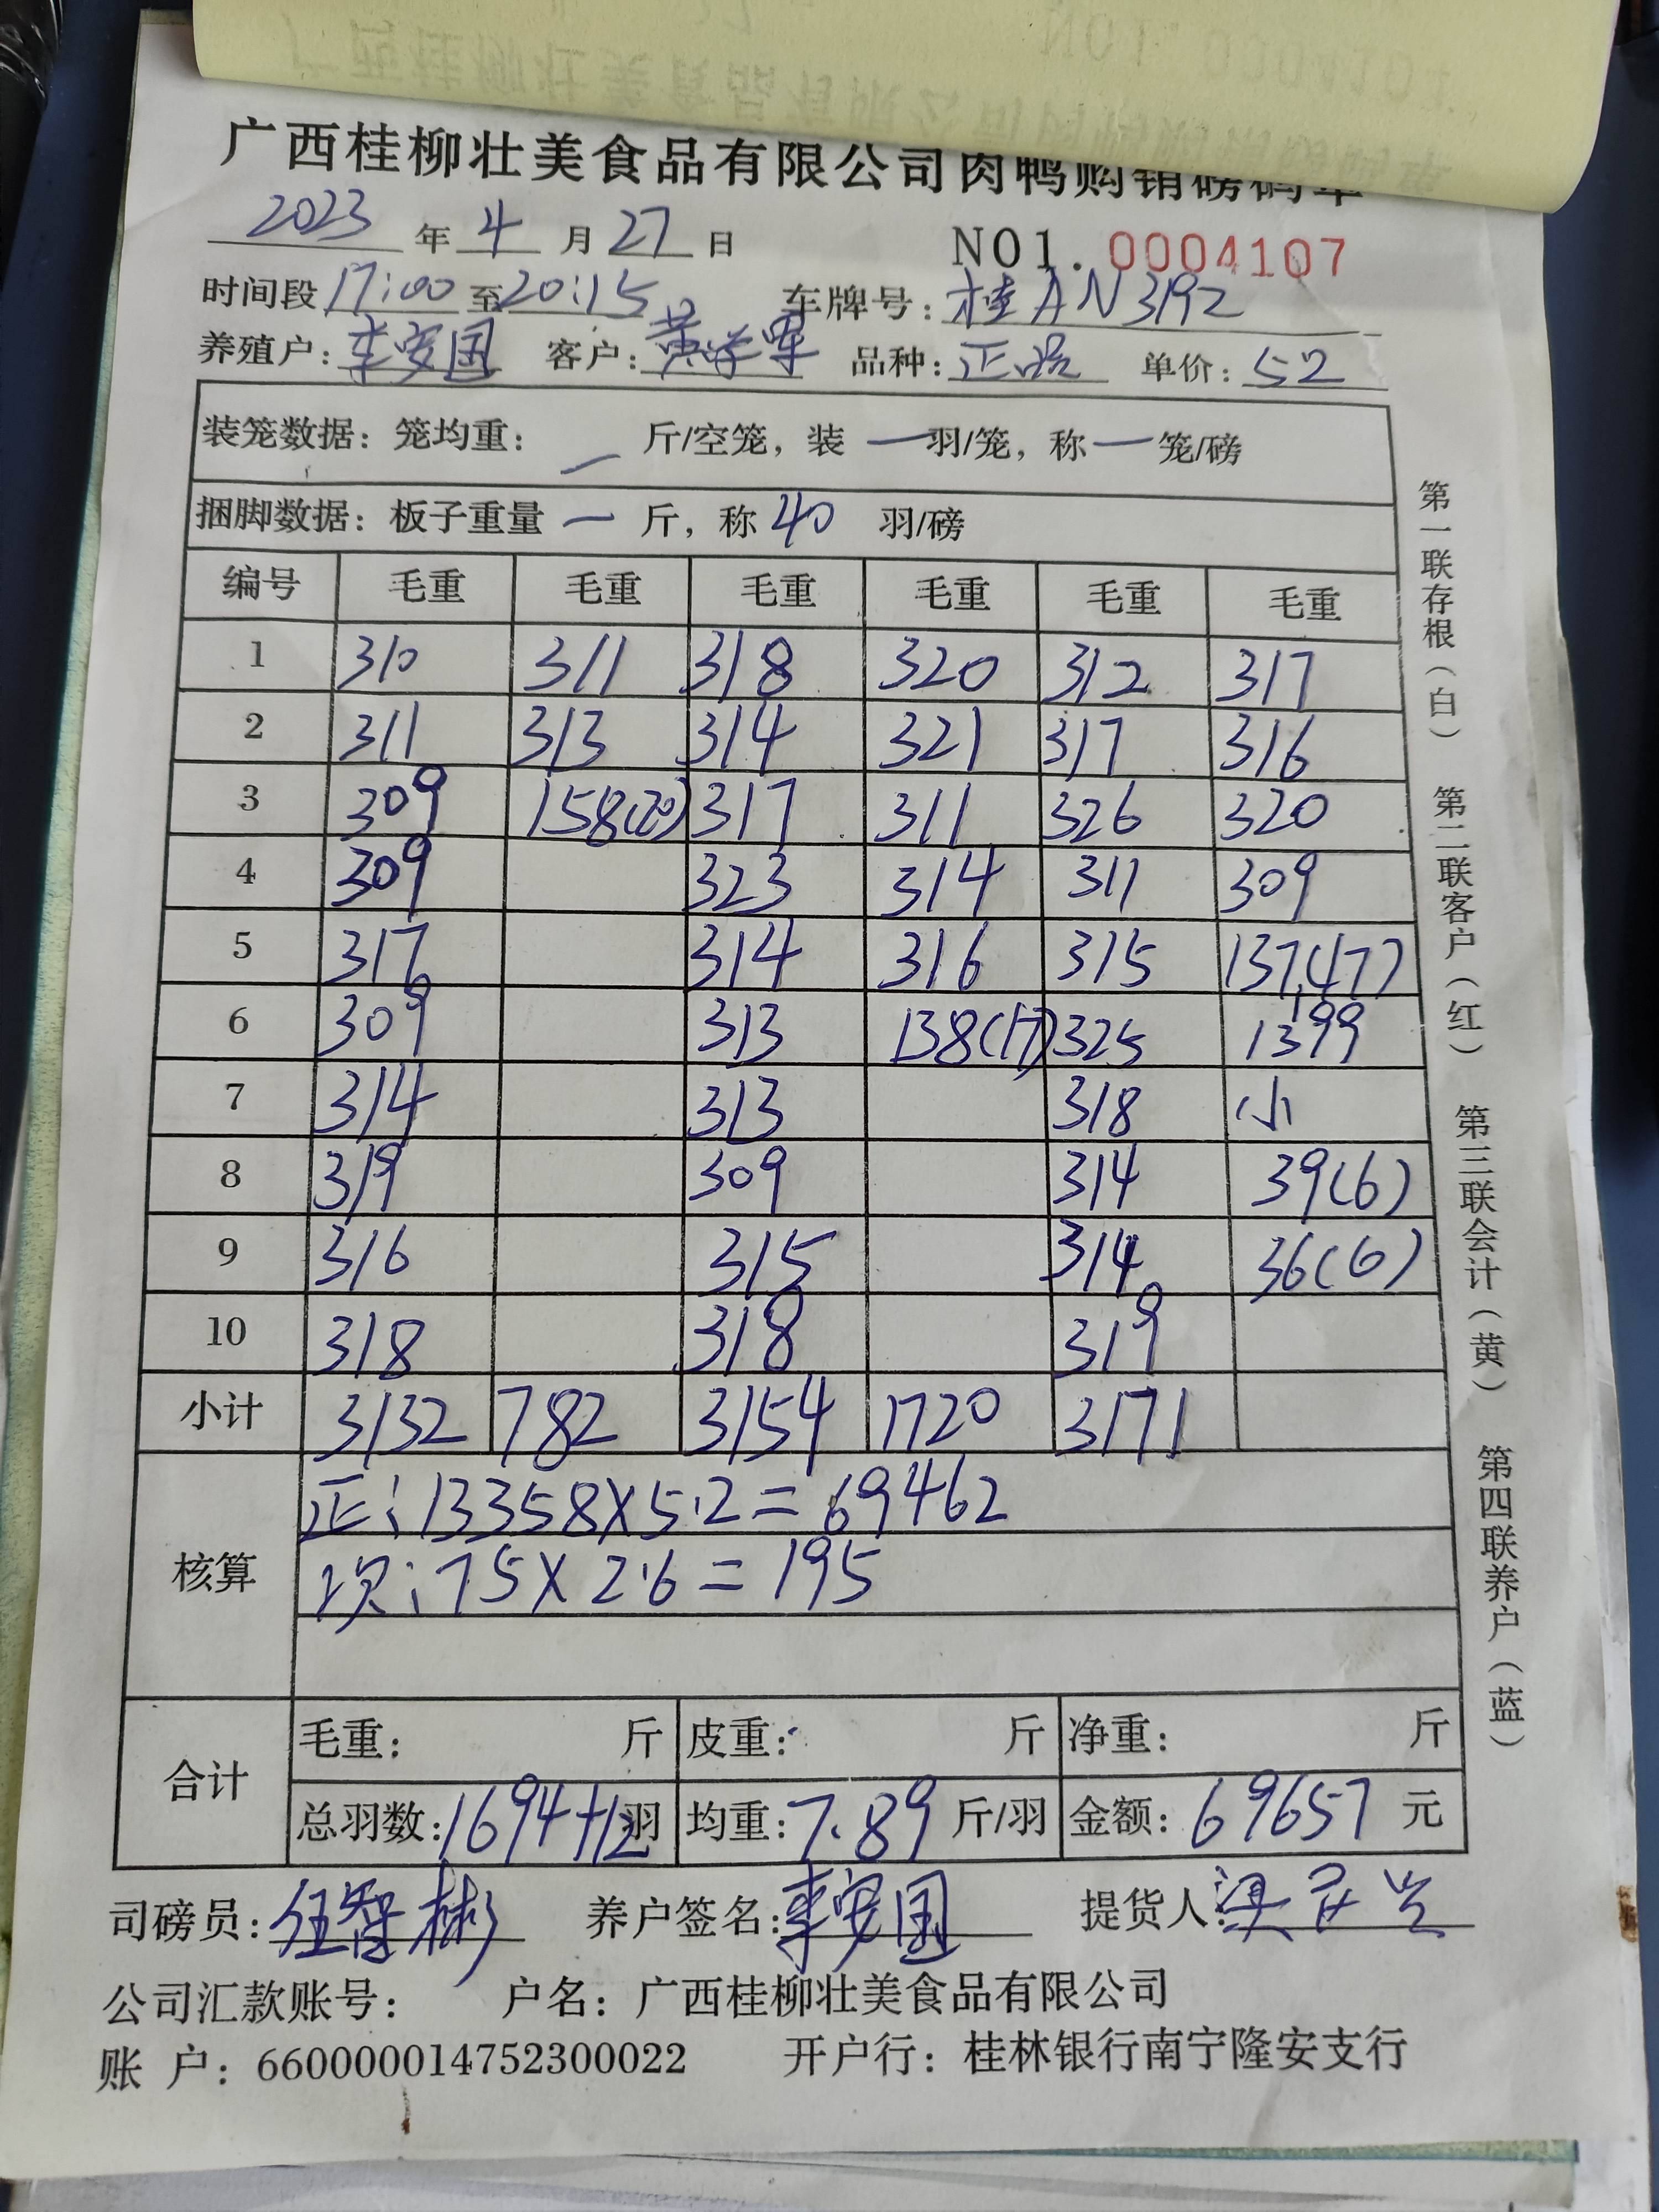 广西桂柳壮美食品有限公司肉鸭购销磅码单
2023 年 4 月 27 日 NO1. 0004107
时间段 17:00 至 20:15 车牌号: 桂AN3192
养殖户: 李安国 客户: 黄学军 品种: 正品 单价: 52
装笼数据: 笼均重: — 斤/空笼, 装 — 羽/笼, 称 — 笼/磅
捆脚数据: 板子重量 — 斤, 称 40 羽/磅
编号 毛重 毛重 毛重 毛重 毛重 毛重
1 310 311 318 320 312 317
2 311 313 314 321 317 316
3 309 158(20) 317 311 326 320
4 309 323 314 311 309
5 317 314 316 315 137(17)
6 309 313 138(17) 325 1399
7 314 313 318 小
8 319 309 314 39(6)
9 316 315 314 36(6)
10 318 318 319
小计 3132 782 3154 1720 3171
核算
正: 13358×5.2=69462
次: 75×2.6=195
合计
毛重: 斤 皮重: 斤 净重: 斤
总羽数: 1694+12 羽 均重: 7.89 斤/羽 金额: 69657 元
司磅员: 任智彬 养户签名: 李安国 提货人:
公司汇款账号: 户名: 广西桂柳壮美食品有限公司
账 户: 660000014752300022 开户行: 桂林银行南宁隆安支行
第一联存根(白) 第二联客户(红) 第三联会计(黄) 第四联养户(蓝)